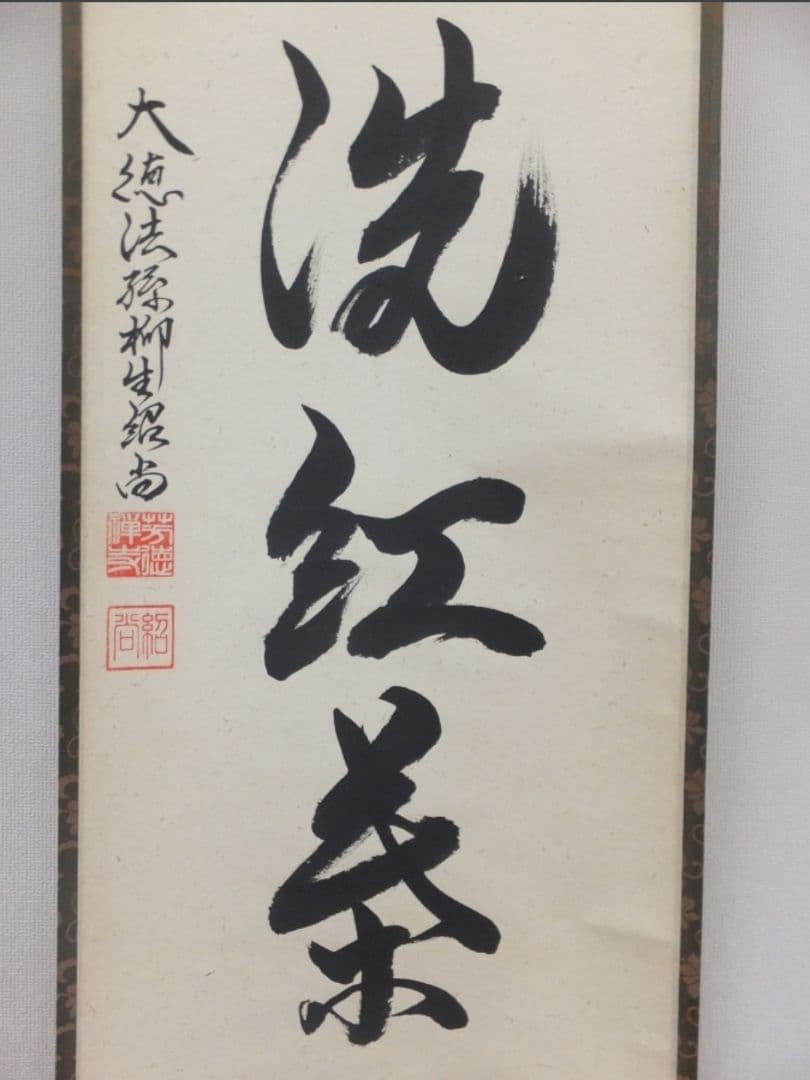 洗紅葉
大德法孫柳生紹尚
芳德禅寺
紹尚